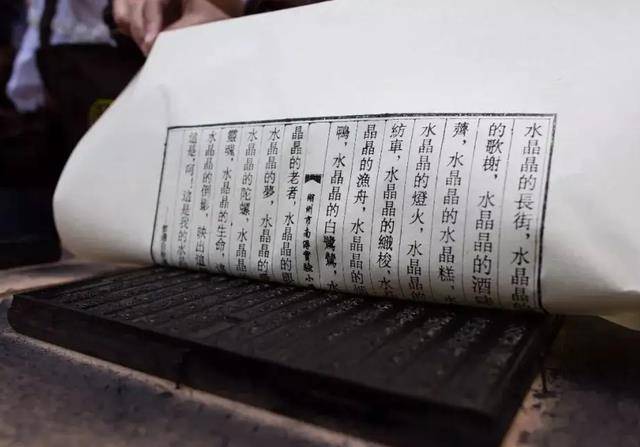 水晶晶的長街，水晶晶的
的歌榭，水晶晶的酒
薺，水晶晶的水晶糕，水
水晶晶的燈火，水晶晶的
紡車，水晶晶的織梭，水
晶晶的漁舟，水晶晶的
鴨，水晶晶的白鷺鷥，水
湖州市南潯實驗小
晶晶的老者，水晶晶的
水晶晶的夢，水晶晶的
水晶晶的陀螺，水晶晶
靈魂，水晶晶的生命，
水晶晶的倒影，映出這
這是，呵！這是我的